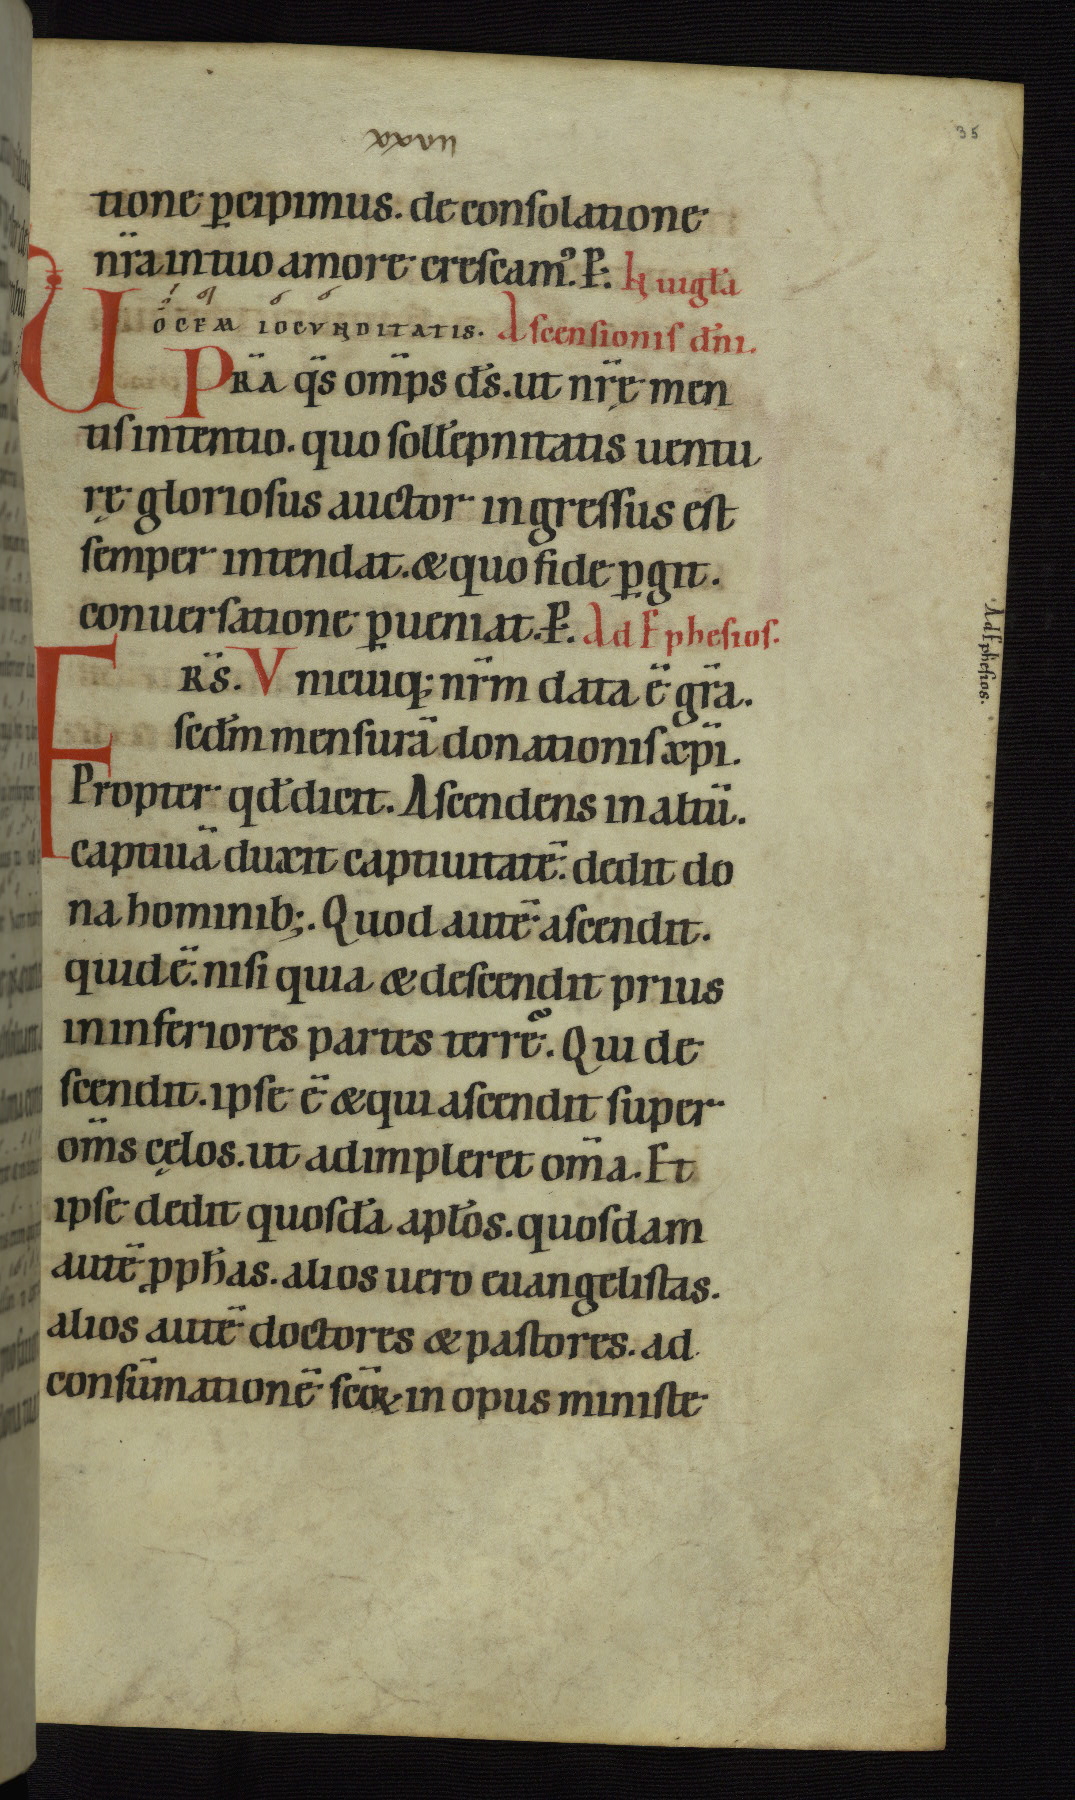 xxxv
35
tione p̲cipimus. de consolatione
nr̄a in tuo amore crescam᷒. P̲.
In uigl̄a
Vocem iocunditatis. Ascensionis dn̄i.
Pra q̄s om̄ps d̄s. ut nr̄ę men
tis intentio. quo sollēpnitatis uentu
rę gloriosus auctor ingressus est
semper intendat. & quo fide p̲git.
conuersatione p̲ueniat. P̲. Ad Ephesios.
Ad Ephesios.
Frs̄. Vnicuiq; nr̄m data ē gr̄a.
secd̄m mensurā donationis xp̄i.
Propter qd̄ dicit. Ascendens in altū.
captiuā duxit captiuitatē. dedit do
na hominib;. Quod autē ascendit.
quid ē. nisi quia & descendit prius
in inferiores partes terrē. Qui de
scendit. ipse ē & qui ascendit super
om̄s cęlos. ut adimpleret om̄a. Et
ipse dedit quosdā apl̄os. quosdam
autē p̲ph̄as. alios uero euangelistas.
alios autē doctores & pastores. ad
consūmationē scōꝝ in opus ministe